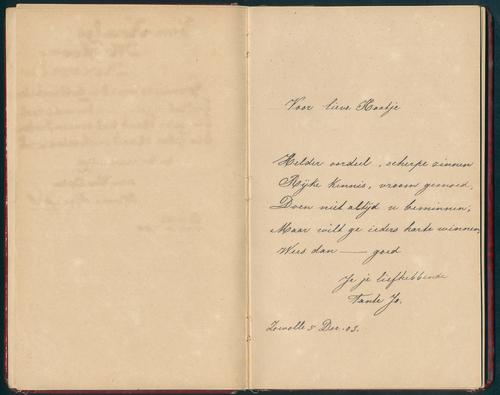 Voor lieve Kaatje
Helder oordeel, scherpe zinnen
Rijke kennis, vroom gemoed,
Doen niet altijd u beminnen;
Maar wilt ge ieders harte winnen,
Wees dan — goed
Je je liefhebbende
Tante Jo.
Zwolle 5 Dec. 03.